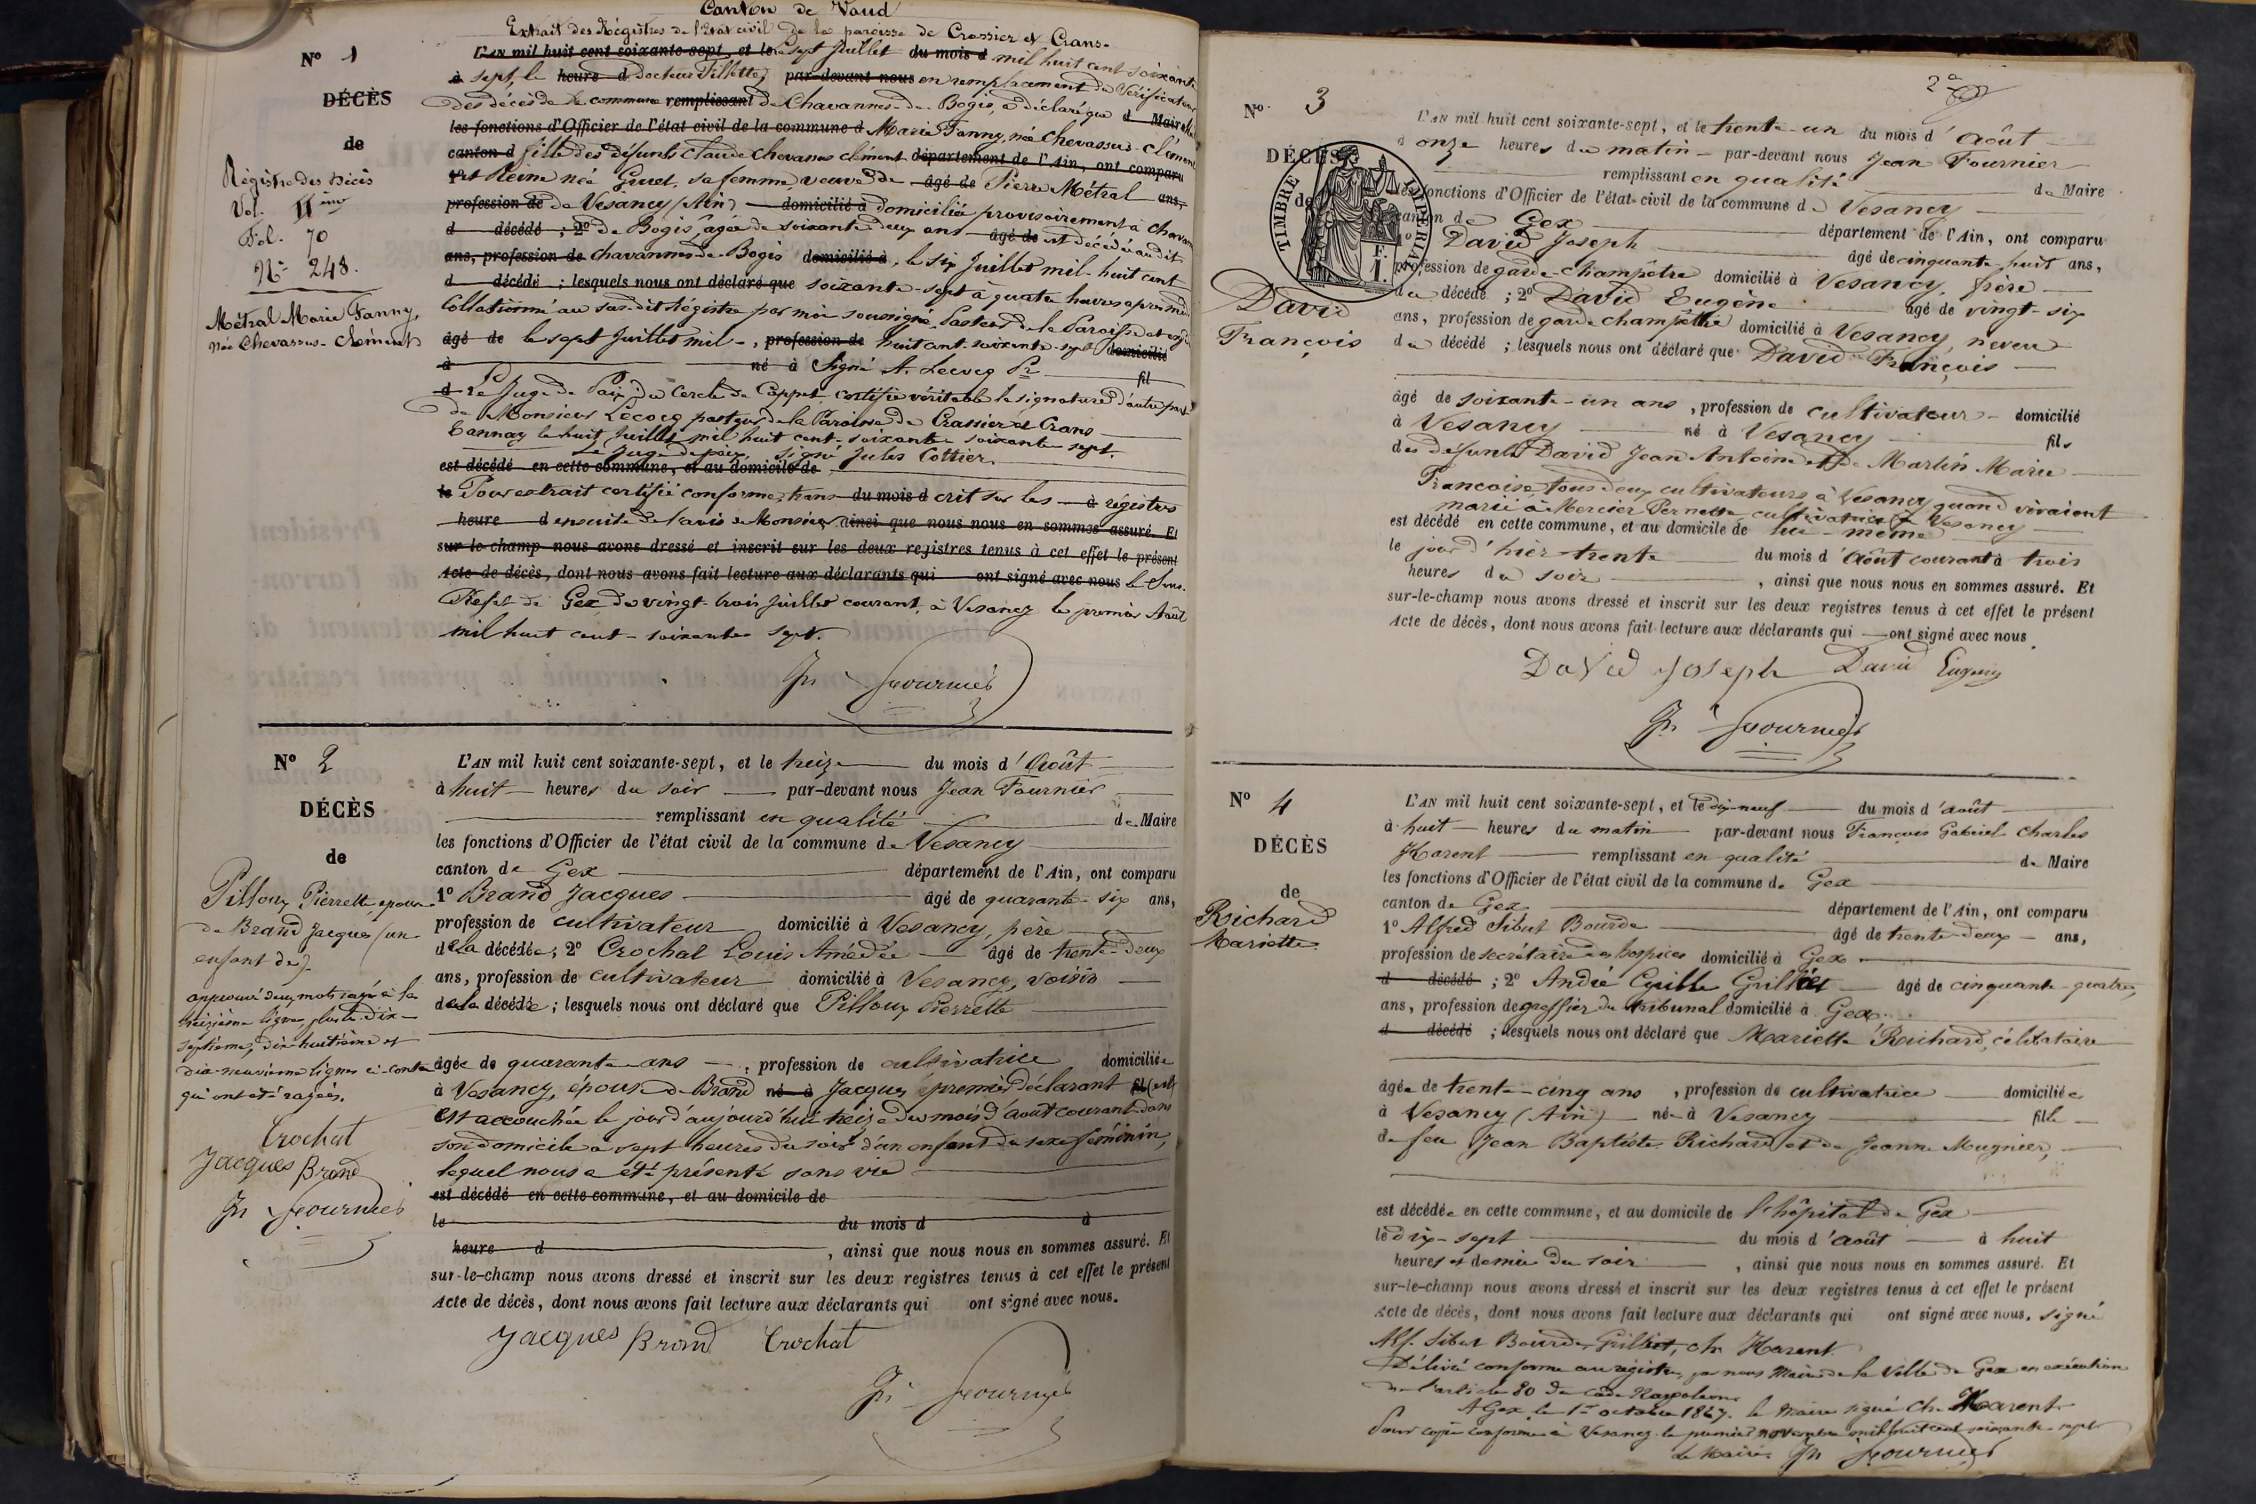 Canton de Vaud
Extrait des Régistres de l'Etat civil de la paroisse de Crassier et Crans.
Nº 1
DÉCÈS
de
Régistre des Décès
Vol. IIème
Fol. 70
Nº 248.
Métral Marie Fanny,
née Chevassus-Clément
L'AN mil huit cent soixante-sept, et le sept Juillet du mois d mil huit cent soixante
à sept, le heure d docteur Pillette, par-devant nous en remplacement du Vérificateur
des décès de la commune remplissant de Chavannes-de-Bogis, a déclaré que d Maire
les fonctions d'Officier de l'état civil de la commune d Marie Fanny, née Chevassus-Clément
canton d fille des défunts Claude Chevassus Clément département de l'Ain, ont comparu
et Reine née Gruet, sa femme, veuve de âgé de Pierre Métral ans,
profession de de Vesancy (Ain) domicilié à domiciliée provisoirement à Chavannes
d décédé ; 2º de Bogis, âgée de soixante deux ans âgé de est décédée au dit
ans, profession de Chavannes de Bogis domicilié à, le six Juillet mil-huit cent
d décédé ; lesquels nous ont déclaré que soixante-sept à quatre heures après midi
Collationné au susdit Régistre par moi soussigné, Pasteur de la Paroisse
âgé de le sept Juillet mil-, profession de huit cent soixante-sept domicilié
à né à Signé A. Lecocq Pr fil
d Le Juge de Paix du Cercle de Coppet certifie véritable la signature d'autre part
de Monsieur Lecocq pasteur de la Paroisse de Crassier et Crans
Tannay le huit Juillet mil huit cent soixante soixante sept.
Le Juge de paix, signé Jules Cottier.
est décédé en cette commune, et au domicile de
le Pour extrait certifié conforme, trans du mois d crit sur les à régistres
heure d ensuite de l'avis de Monsieur ainsi que nous nous en sommes assuré. Et
sur-le-champ nous avons dressé et inscrit sur les deux registres tenus à cet effet le présent
Acte de décès, dont nous avons fait lecture aux déclarants qui ont signé avec nous le Sous-
Préfet de Gex du vingt-trois Juillet courant, à Vesancy le premier Août
mil huit cent-soixante sept.
Jn Fournier
Nº 2
DÉCÈS
de
Pilloux Pierrette, épouse
de Brand Jacques (un
enfant de).
approuvé deux mots rayés à la
treizième ligne, plus les dix-
septième, dix-huitième et
dix-neuvième lignes ci-contre
qui ont été rayées.
Crochat
Jacques Brand
Jn Fournier
L'AN mil huit cent soixante-sept, et le treize du mois d'Août
à huit heures du soir par-devant nous Jean Fournier
remplissant en qualité de Maire
les fonctions d'Officier de l'état civil de la commune de Vesancy
canton de Gex département de l'Ain, ont comparu
1º Brand Jacques âgé de quarante-six ans,
profession de cultivateur domicilié à Vesancy, père
de la décédée; 2º Crochat Louis Amédée âgé de trente-deux
ans, profession de cultivateur domicilié à Vesancy, voisin
de la décédée ; lesquels nous ont déclaré que Pilloux Pierrette
âgée de quarante ans, profession de cultivatrice domiciliée
à Vesancy, épouse de Brand né à Jacques, premier déclarant fil
est accouchée le jour d'aujourd'hui treize du mois d'août courant dans
son domicile à sept heures du soir d'un enfant du sexe féminin,
lequel nous a été présenté sans vie
est décédé en cette commune, et au domicile de
le du mois d à
heure d, ainsi que nous nous en sommes assuré. Et
sur-le-champ nous avons dressé et inscrit sur les deux registres tenus à cet effet le présent
Acte de décès, dont nous avons fait lecture aux déclarants qui ont signé avec nous.
Jacques Brand Crochat
Jn Fournier
2
Nº 3
DÉCÈS
de
TIMBRE IMPÉRIAL
F.
1.
David
François
L'AN mil huit cent soixante-sept, et le trente-un du mois d'Août
à onze heures du matin par-devant nous Jean Fournier
remplissant en qualité de Maire
les fonctions d'Officier de l'état-civil de la commune de Vesancy
canton de Gex département de l'Ain, ont comparu
1º David Joseph âgé de cinquante-huit ans,
profession de garde-champêtre domicilié à Vesancy, frère
du décédé ; 2º David Eugène âgé de vingt-six
ans, profession de garde champêtre domicilié à Vesancy, neveu
du décédé ; lesquels nous ont déclaré que David François
âgé de soixante-un ans, profession de cultivateur domicilié
à Vesancy né à Vesancy fils
des défunts David Jean Antoine et de Martin Marie
Françoise tous deux cultivateurs à Vesancy quand vivaient
marié à Mercier Pernette, cultivatrice à Vesancy
est décédé en cette commune, et au domicile de lui-même
le jour d'hier trente du mois d'Août courant à trois
heures du soir, ainsi que nous nous en sommes assuré. Et
sur-le-champ nous avons dressé et inscrit sur les deux registres tenus à cet effet le présent
Acte de décès, dont nous avons fait lecture aux déclarants qui ont signé avec nous.
David Joseph David Eugène
Jn Fournier
Nº 4
DÉCÈS
de
Richard
Mariette
L'AN mil huit cent soixante-sept, et le dix-neuf du mois d'août
à huit heures du matin par-devant nous François Gabriel Charles
Harent remplissant en qualité de Maire
les fonctions d'Officier de l'état civil de la commune de Gex
canton de Gex département de l'Ain, ont comparu
1º Alfred Sibut Bourde âgé de trente-deux ans,
profession de secrétaire des hospices domicilié à Gex
d décédé ; 2º André Cyrille Grillet âgé de cinquante-quatre
ans, profession de greffier du tribunal domicilié à Gex
d décédé ; lesquels nous ont déclaré que Mariette Richard, célibataire
âgée de trente-cinq ans, profession de cultivatrice domiciliée
à Vesancy (Ain) née à Vesancy fille
de feu Jean Baptiste Richard et de Jeanne Mugnier,
est décédée en cette commune, et au domicile de l'hôpital de Gex
le dix-sept du mois d'août à huit
heures et demie du soir, ainsi que nous nous en sommes assuré. Et
sur-le-champ nous avons dressé et inscrit sur les deux registres tenus à cet effet le présent
Acte de décès, dont nous avons fait lecture aux déclarants qui ont signé avec nous. signé
Alf. Sibut Bourde, Grillet, Ch. Harent
Délivré conforme au régistre, par nous Maire de la Ville de Gex en exécution
de l'article 80 du Code Napoléon
A Gex, le 1er octobre 1867. le Maire signé Ch. Harent
Pour copie conforme à Vesancy le premier novembre mil huit cent soixante-sept
le Maire, Jn Fournier